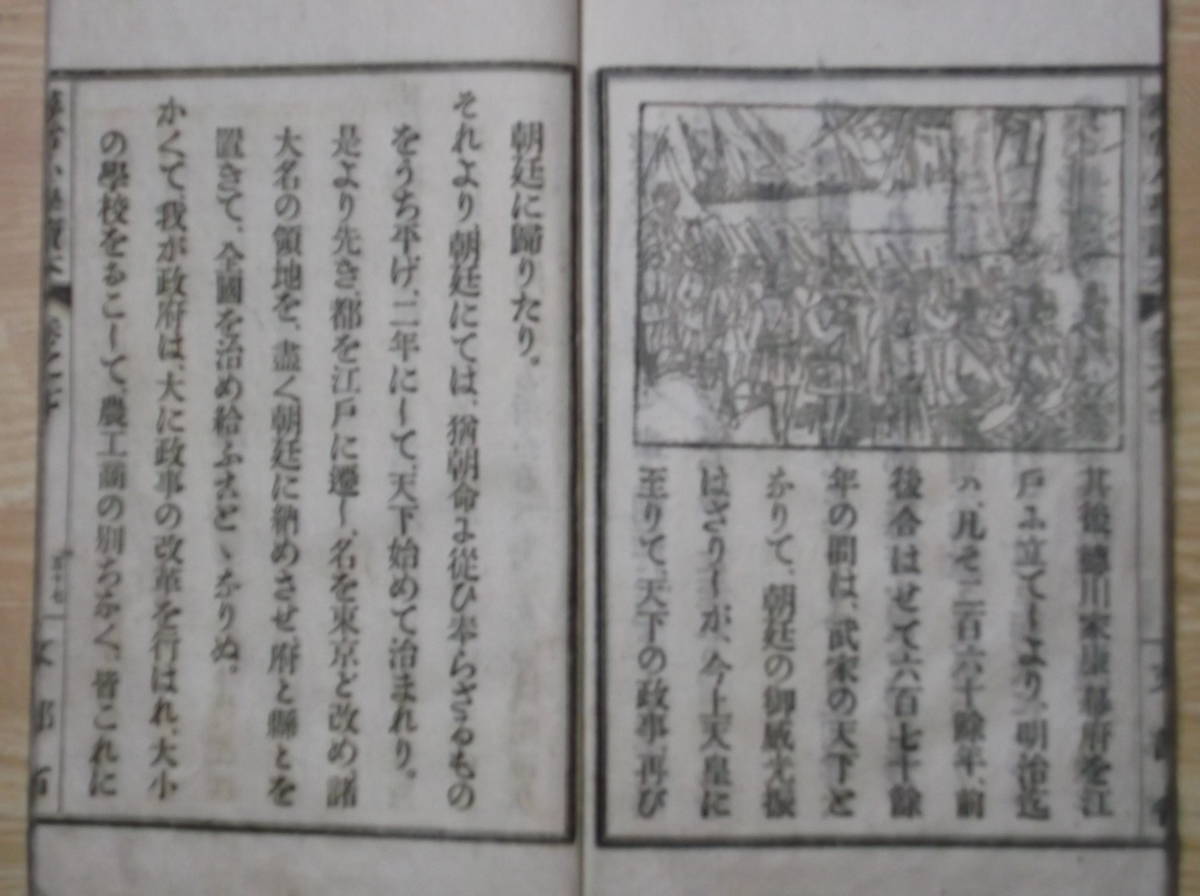 其後德川家康幕府を江
戸ふ立て〜より、明治迄
ハ、凡そ二百六十餘年、前
後合はせて六百七十餘
年の間は、武家の天下と
なりて、朝廷の御威光振
はざり〜が、今上天皇に
至りて、天下の政事再び
朝廷に歸りたり。
それより、朝廷にては、猶朝命よ從ひ奉らざるもの
をうち平げ、二年に〜て、天下始めて治まれり。
是より先き、都を江戸に遷〜、名を東京と改め、諸
大名の領地を、盡く朝廷に納めさせ、府と縣とを
置きて、全國を治め給ふこと、なりぬ。
かくて、我が政府は、大に政事の改革を行はれ、大小
の學校をおこ〜て、農工商の別ちなく、皆これに
尋常小學讀本
卷之七
文部省